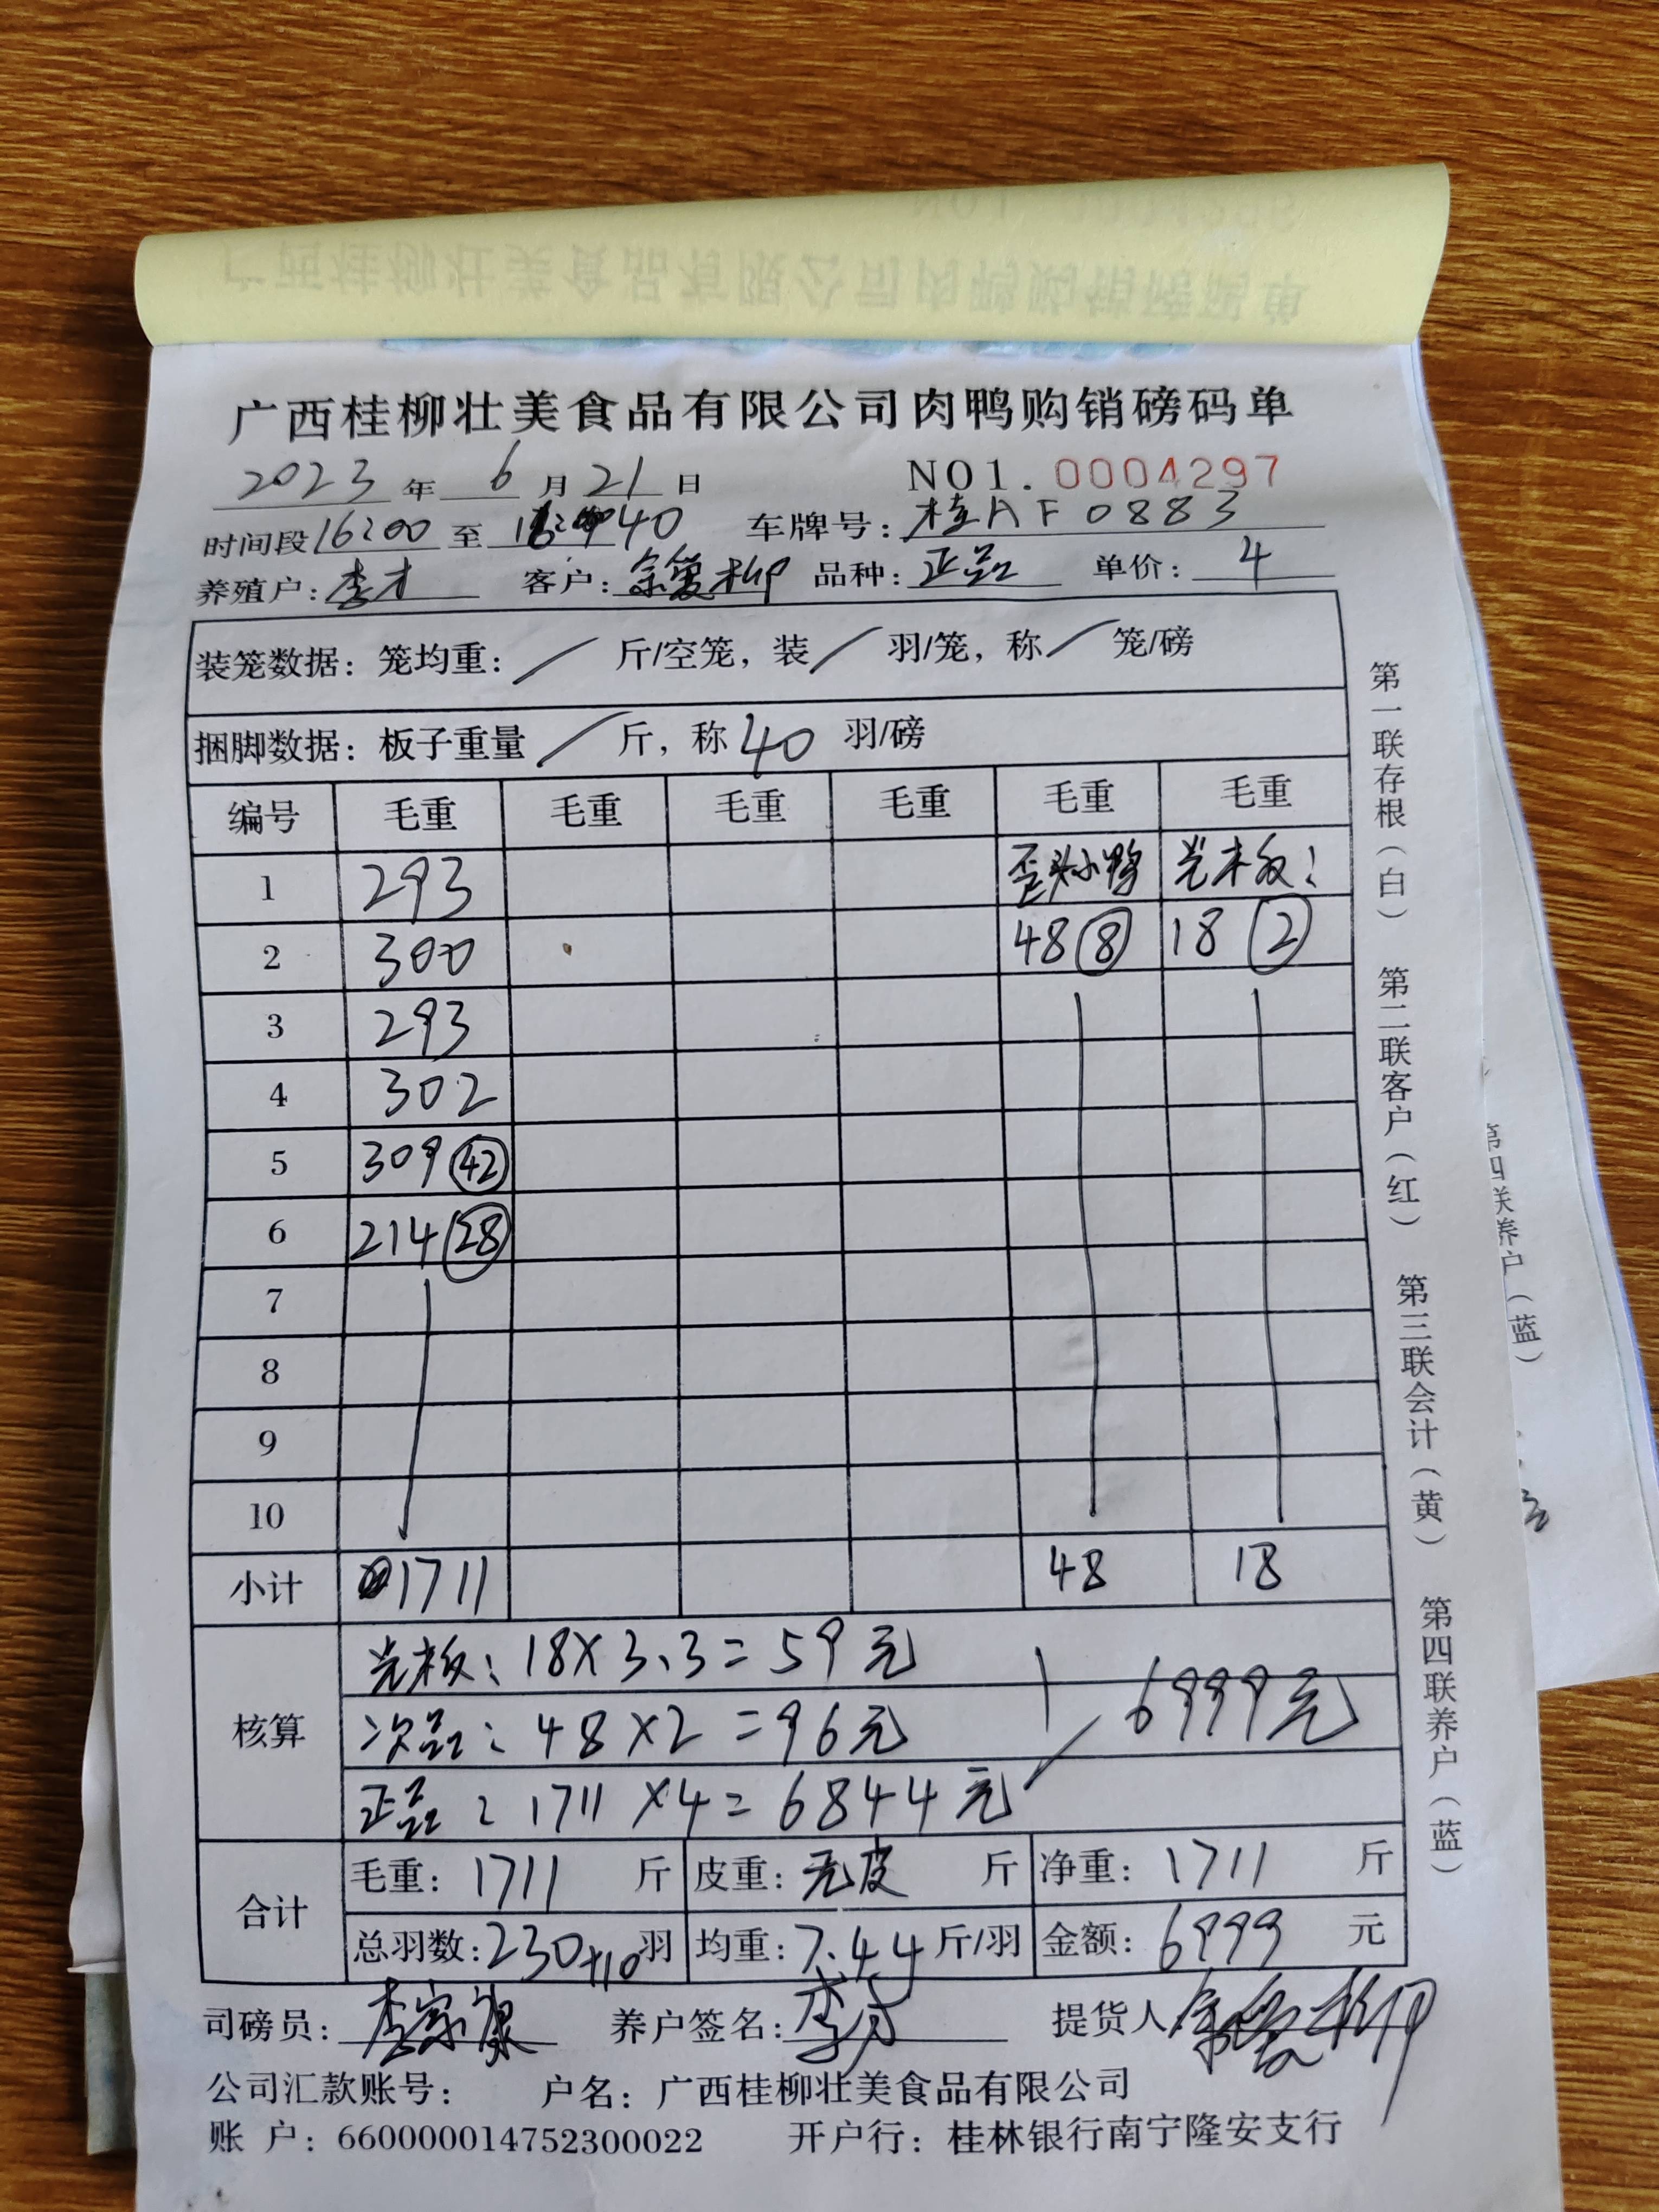 广西桂柳壮美食品有限公司肉鸭购销磅码单
2023年 6月21日 NO1.0004297
时间段16:00至 40 车牌号:桂AF0883
养殖户:李才 客户: 柳 品种:正品 单价:4
装笼数据:笼均重:/ 斤/空笼,装/ 羽/笼,称/ 笼/磅
捆脚数据:板子重量/ 斤,称40 羽/磅
编号 毛重 毛重 毛重 毛重 毛重 毛重
1 293 歪头小鸭 光板:
2 300 48⑧ 18②
3 293
4 302
5 309㊷
6 214㉘
7
8
9
10
小计 1711 48 18
核算
光板:18×3.3=59元
次品:48×2=96元
正品:1711×4=6844元
6999元
合计
毛重:1711斤 皮重:无皮斤 净重:1711斤
总羽数:230+10羽 均重:7.44斤/羽 金额:6999元
司磅员:李家康 养户签名:李才 提货人
公司汇款账号: 户名:广西桂柳壮美食品有限公司
账 户:660000014752300022 开户行:桂林银行南宁隆安支行
第一联存根(白) 第二联客户(红) 第三联会计(黄) 第四联养户(蓝)
第四联养户(蓝)